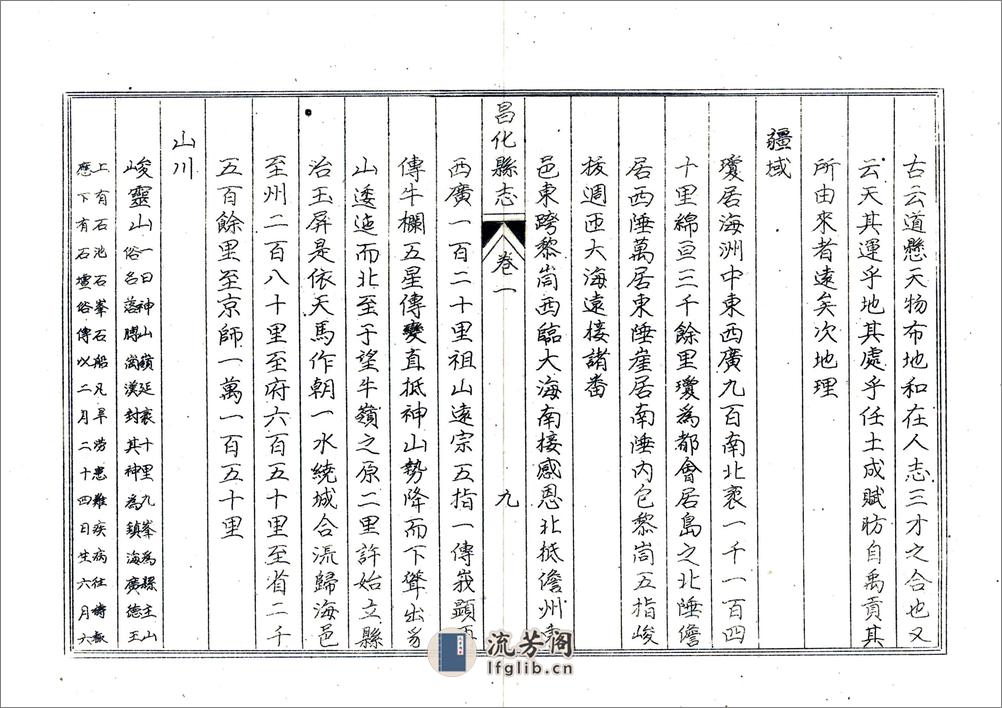 古云道懸天物布地和在人志三才之合也又
云天其運乎地其處乎任土成賦昉自禹貢其
所由來者遠矣次地理
疆域
瓊居海洲中東西廣九百南北袤一千一百四
十里綿亘三千餘里瓊為都會居島之北陲儋
居西陲萬居東陲崖居南陲內包黎峝五指峻
拔週匝大海遠接諸番
邑東跨黎峝西臨大海南接感恩北抵儋州東
西廣一百二十里祖山遠宗五指一傳峩顕再
傳牛欄五星傳變直抵神山勢降而下聳出多
山逶迤而北至于望牛嶺之原二里許始立縣
治玉屏是依天馬作朝一水繞城合流歸海邑
至州二百八十里至府六百五十里至省二千
五百餘里至京師一萬一百五十里
山川
峻靈山一曰神山嶺延袤十里九峯為縣主山
俗名落膊崗漢封其神為鎮海廣德王
上有石池石峯石船凡旱勞患難疾病往禱輒
應下有石壇俗傳以二月二十四日生六月六
昌化縣志 卷一 九
流芳阁
lfglib.cn